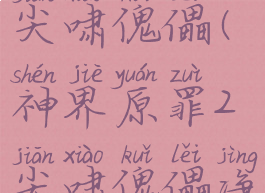 尖啸傀儡(
shén jiè yuán zuì
神界原罪2
jiān xiào kuǐ lěi jìng
尖啸傀儡